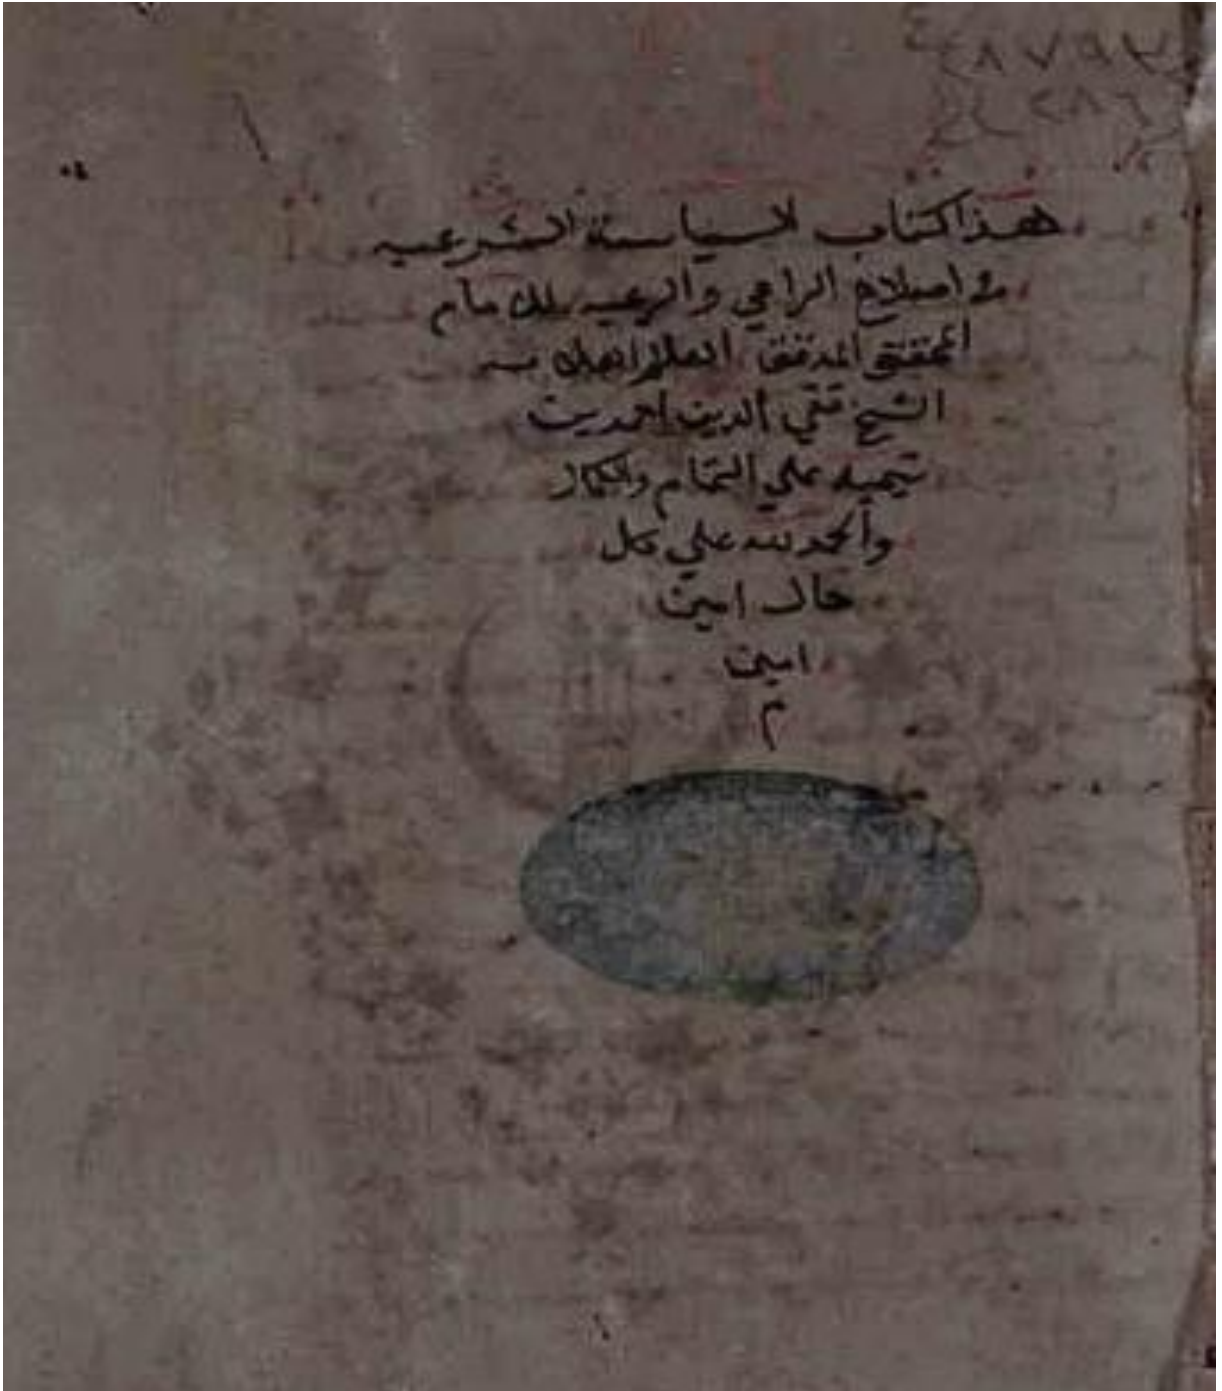 هذا كتاب السياسة الشرعيه
في اصلاح الراعي والرعيه للامام
المحقق المدقق العلم العلامه
الشيخ تقي الدين احمد بن
تيميه علي التمام والكمال
والحمد لله علي كل
حال امين
امين
م